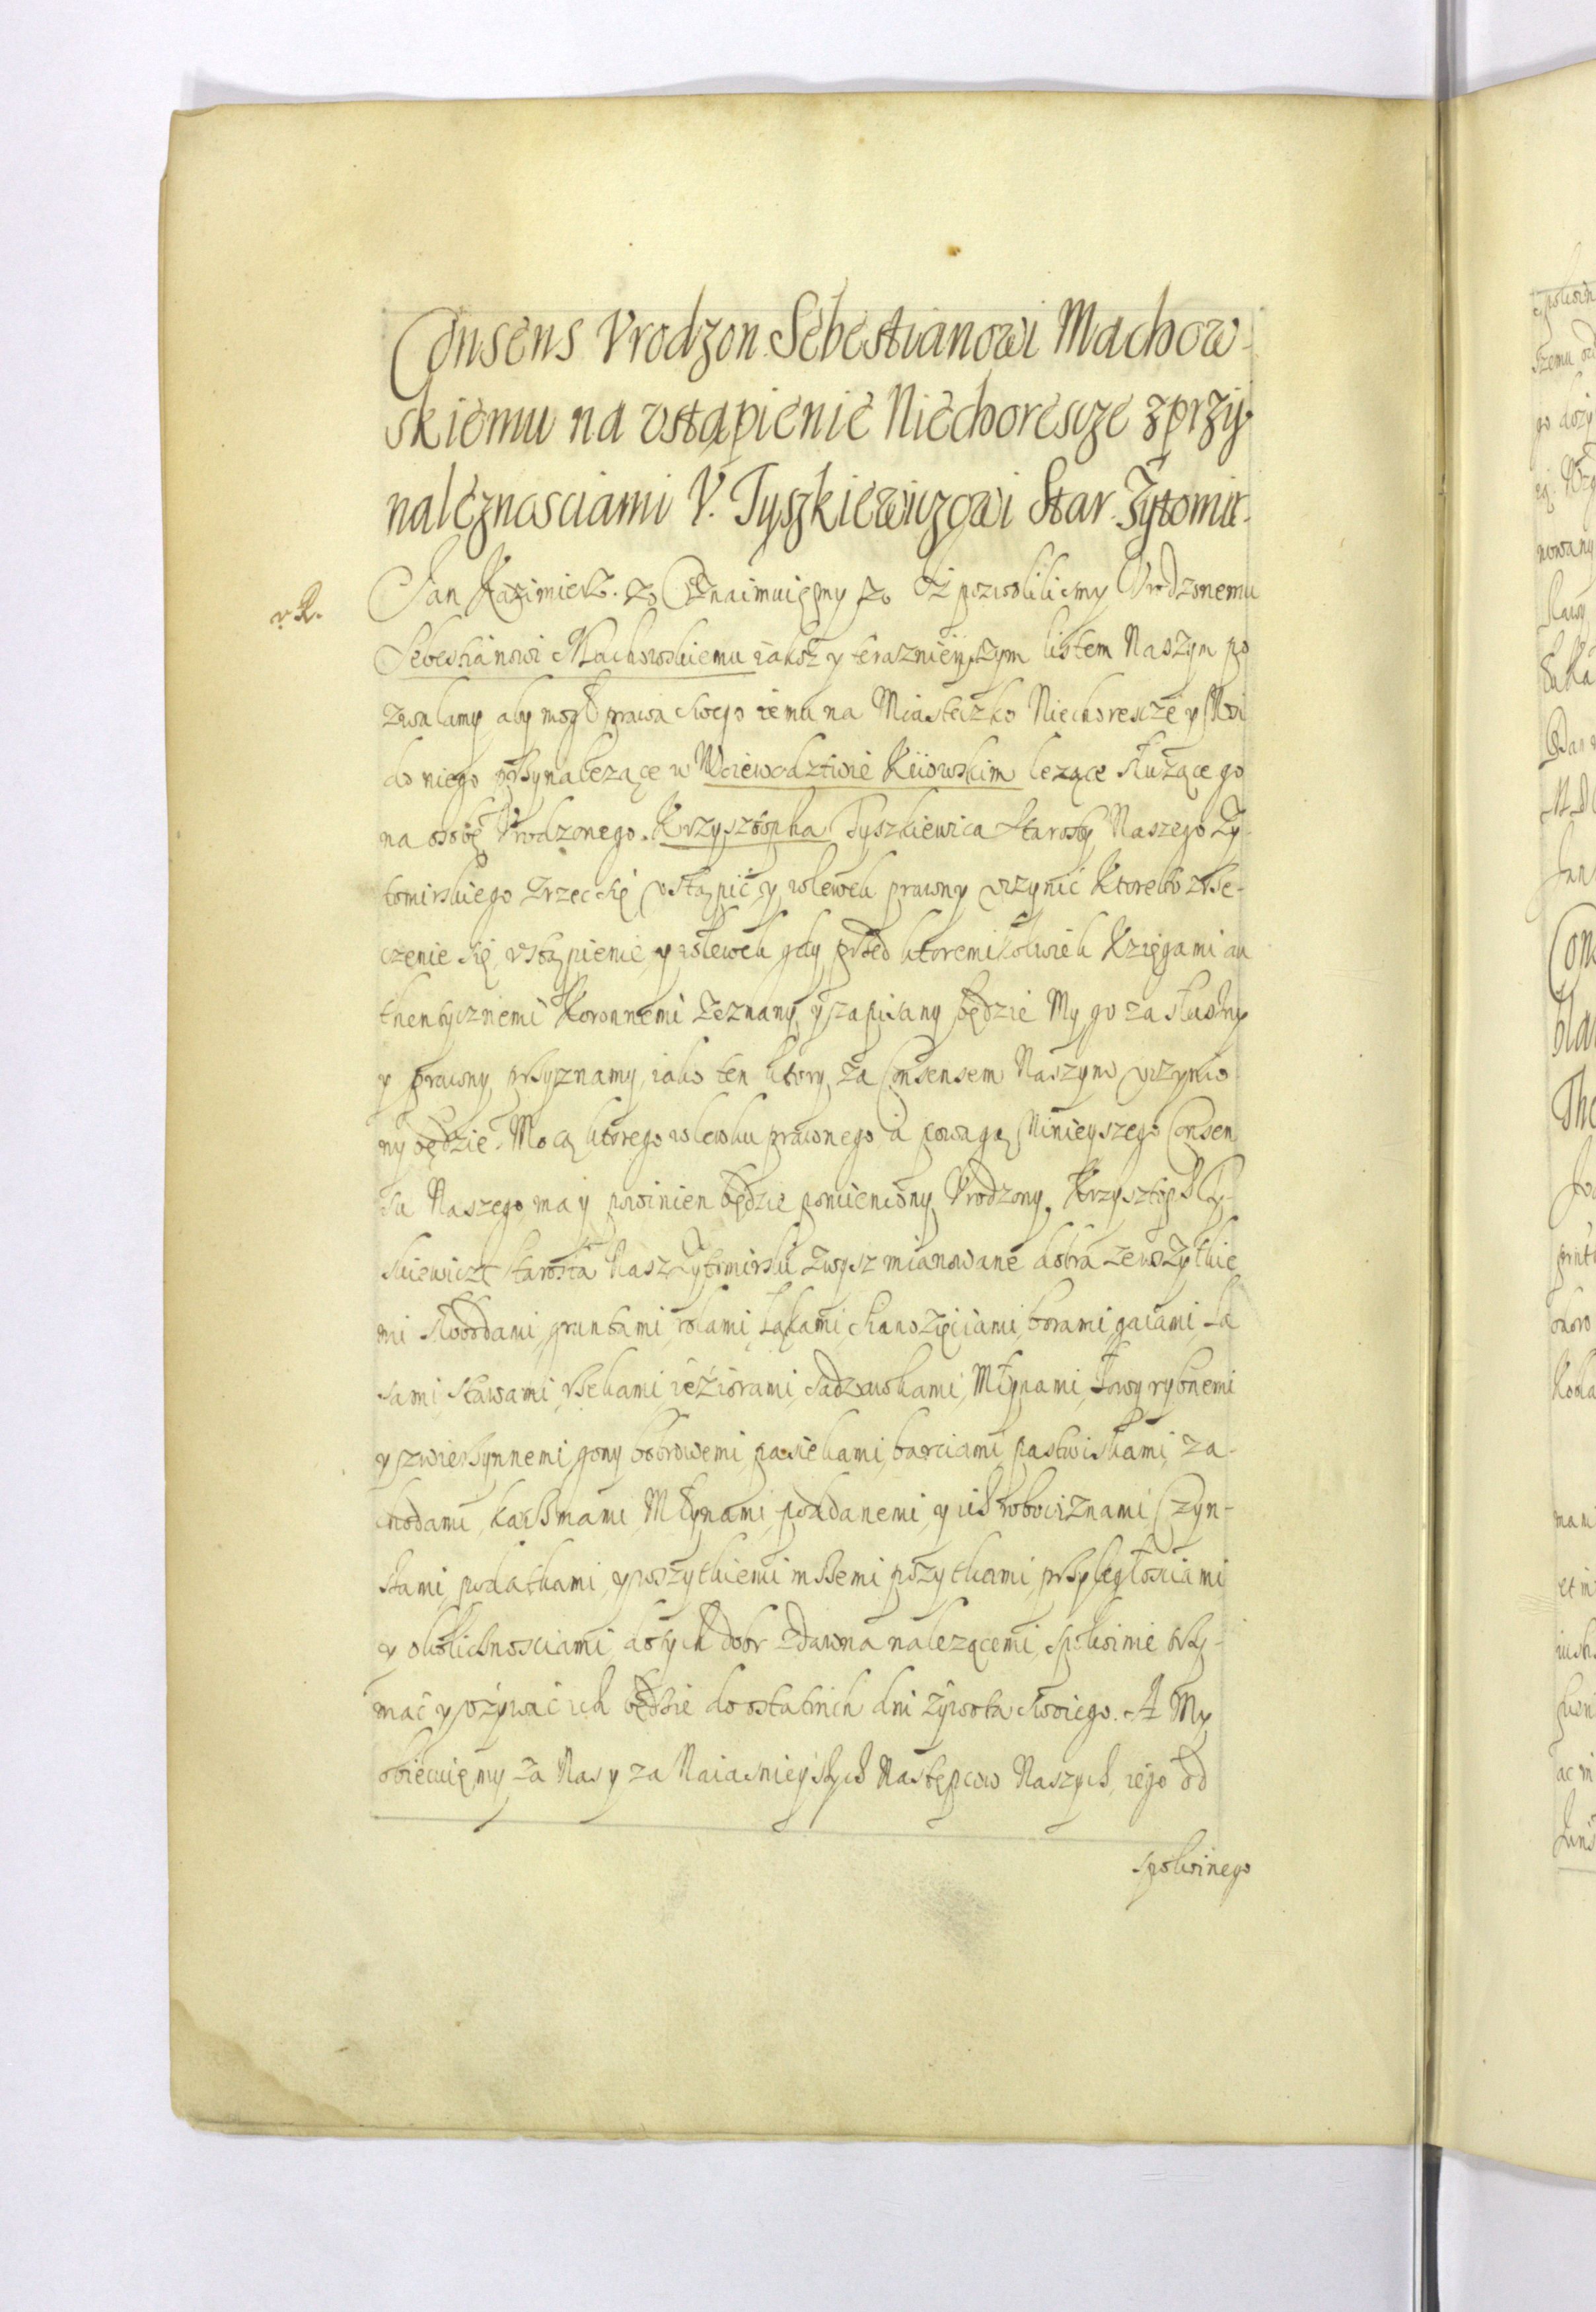 Consens Vrodzon. Sebestianowi Machow-
skiemu na vstąpienie Niechorescze z przy-
należnosciami V. Tyszkiewiczowi Star. Żytomir.
Jan Kazimierz. Oznaimuięmy Iż pozwolilismy Vrodzonemu
Sebestianowi Machowskiemu iakosz y teraznieyszym listem Naszym po
zwalamy aby mogł prawa swego iemu na Miasteczko Niechorescze y Wsi
do niego przynalezące w Woiewodztwie Kiiowskim lezące służącego
na osobę Vrodzonego Krzysztopha Tyszkiewica Starosty Naszego Zy-
tomirskiego zrzec się vstąpić y wlewek prawny vczynić Ktore to zrze-
czenie się, vstąpienie, y wlewek gdy przed ktoremikolwiek Xzięgami au
thentycznemi Koronnemi zeznany y zapisany będzie My go za słuszny
y prawny przyznamy, iako ten ktory za Consensem Naszym vczynio
ny będzie. Mocą ktorego wlewku prawnego a powagą Ninieyszego Consen
su Naszego, ma y powinien będzie pomieniony Vrodzony Krzysztoph Ty-
skiewicz Starosta Nasz Zytomirski zwysz mianowane dobra ze wszytkie
mi Swobodami, gruntami, rolami, łąkami, sianozęciami, borami, gaiami, la
sami, stawami, rzekami, ieziorami, sadzawkami, Młynami, łowy rybnemi
y zwierzynnemi, gony bobrowemi, pasiekami, barciami, pastwiskami, za-
chodami, karczmami, Młynami, poddanemi, y ich robociznami, Czyn-
szami, podatkami, y wszytkiemi inszemi pożytkami, przyległosciami
y okolicznosciami do tych dobr zdawna nalezącemi, spokoinie trzy-
mać y vżywać ich będzie do ostatnich dni żywota swoiego. A My
obiecuięmy za Nas y za Naiasnieyszych Następcow Naszych, iego od
spokoinego